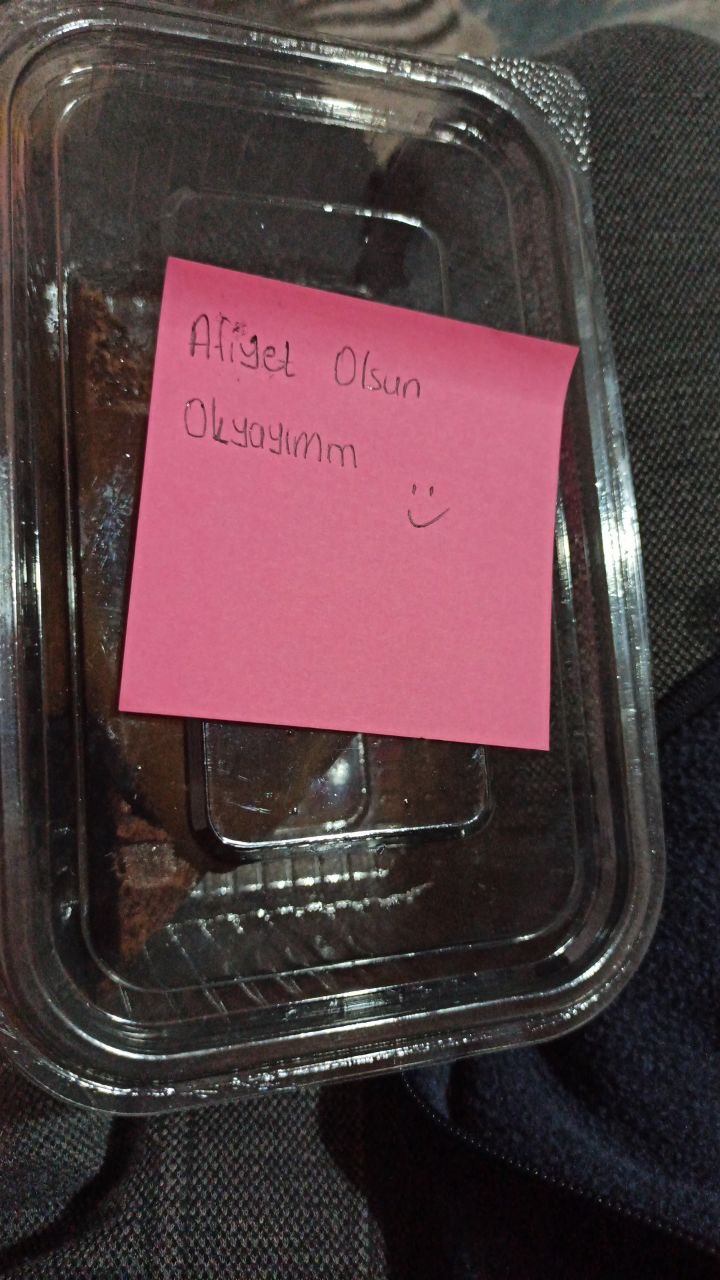 Afiyet Olsun
Okyayımm
:)